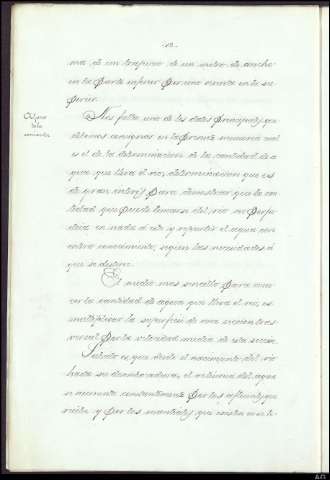 ma de un trapecio de un metro de ancho
en la parte inferior por uno noventa en la su
perior.
Aforo
de la
corriente
Nos falta uno de los datos principales que
debemos consignar en la presente memoria cual
es el de la determinacion de la cantidad de a
gua que lleva el rio, determinacion que es
de gran interés para demostrar que la can
tidad que puede tomarse del rio no perju
dica en nada á este y repartir el agua con
entero conocimiento, segun las necesidades á
que se destina.
El medio mas sencillo para cono
cer la cantidad de agua que lleva el rio, es
multiplicar la superficie de una seccion trans
versal por la velocidad media de esta seccion.
Sabido es que desde el nacimiento del rio
hasta su desembocadura, el volumen del agua
se aumenta constantemente por los afluentes que
recibe y por los manantiales que existen en el